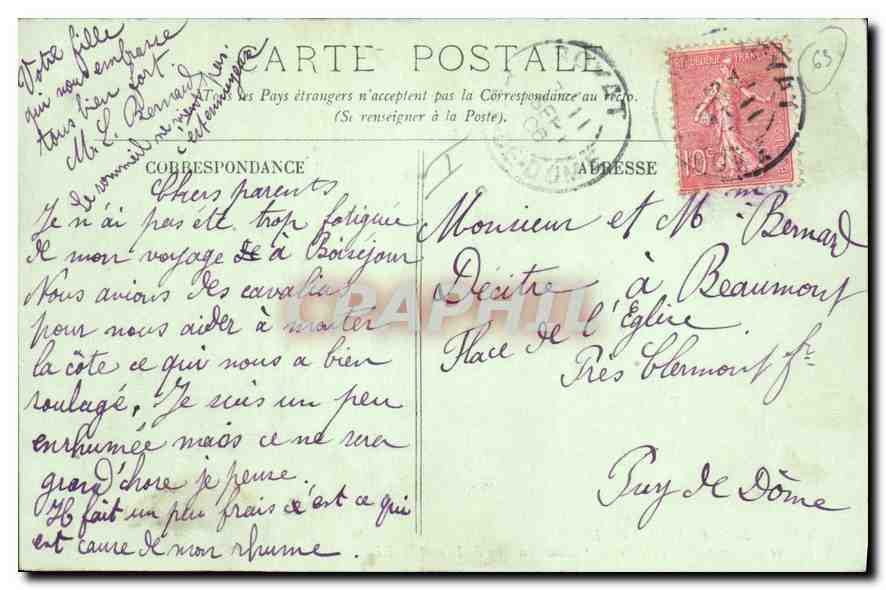 CARTE POSTALE
Tous les Pays étrangers n'acceptent pas la Correspondance au recto.
(Se renseigner à la Poste).
CORRESPONDANCE
Chers parents
Je n'ai pas été trop fatiguée
de mon voyage à Boiséjour
Nous avions des cavaliers
pour nous aider à monter
la côte ce qui nous a bien
soulagé. Je suis un peu
enrhumée mais ce ne sera
grand'chose je pense.
Il fait un peu frais c'est ce qui
est cause de mon rhume.
Votre fille
qui vous embrasse
tous bien fort
M. L. Bernard
Le sommeil ne vient pas
c'est ennuyeux
ADRESSE
Monsieur et Mme Bernard
Décitre à Beaumont
Place de l'Église
Près Clermont fd
Puy de Dôme
ROYAT
DE-DOME
REPUBLIQUE FRANCAISE
10c
63
CPAPHIL